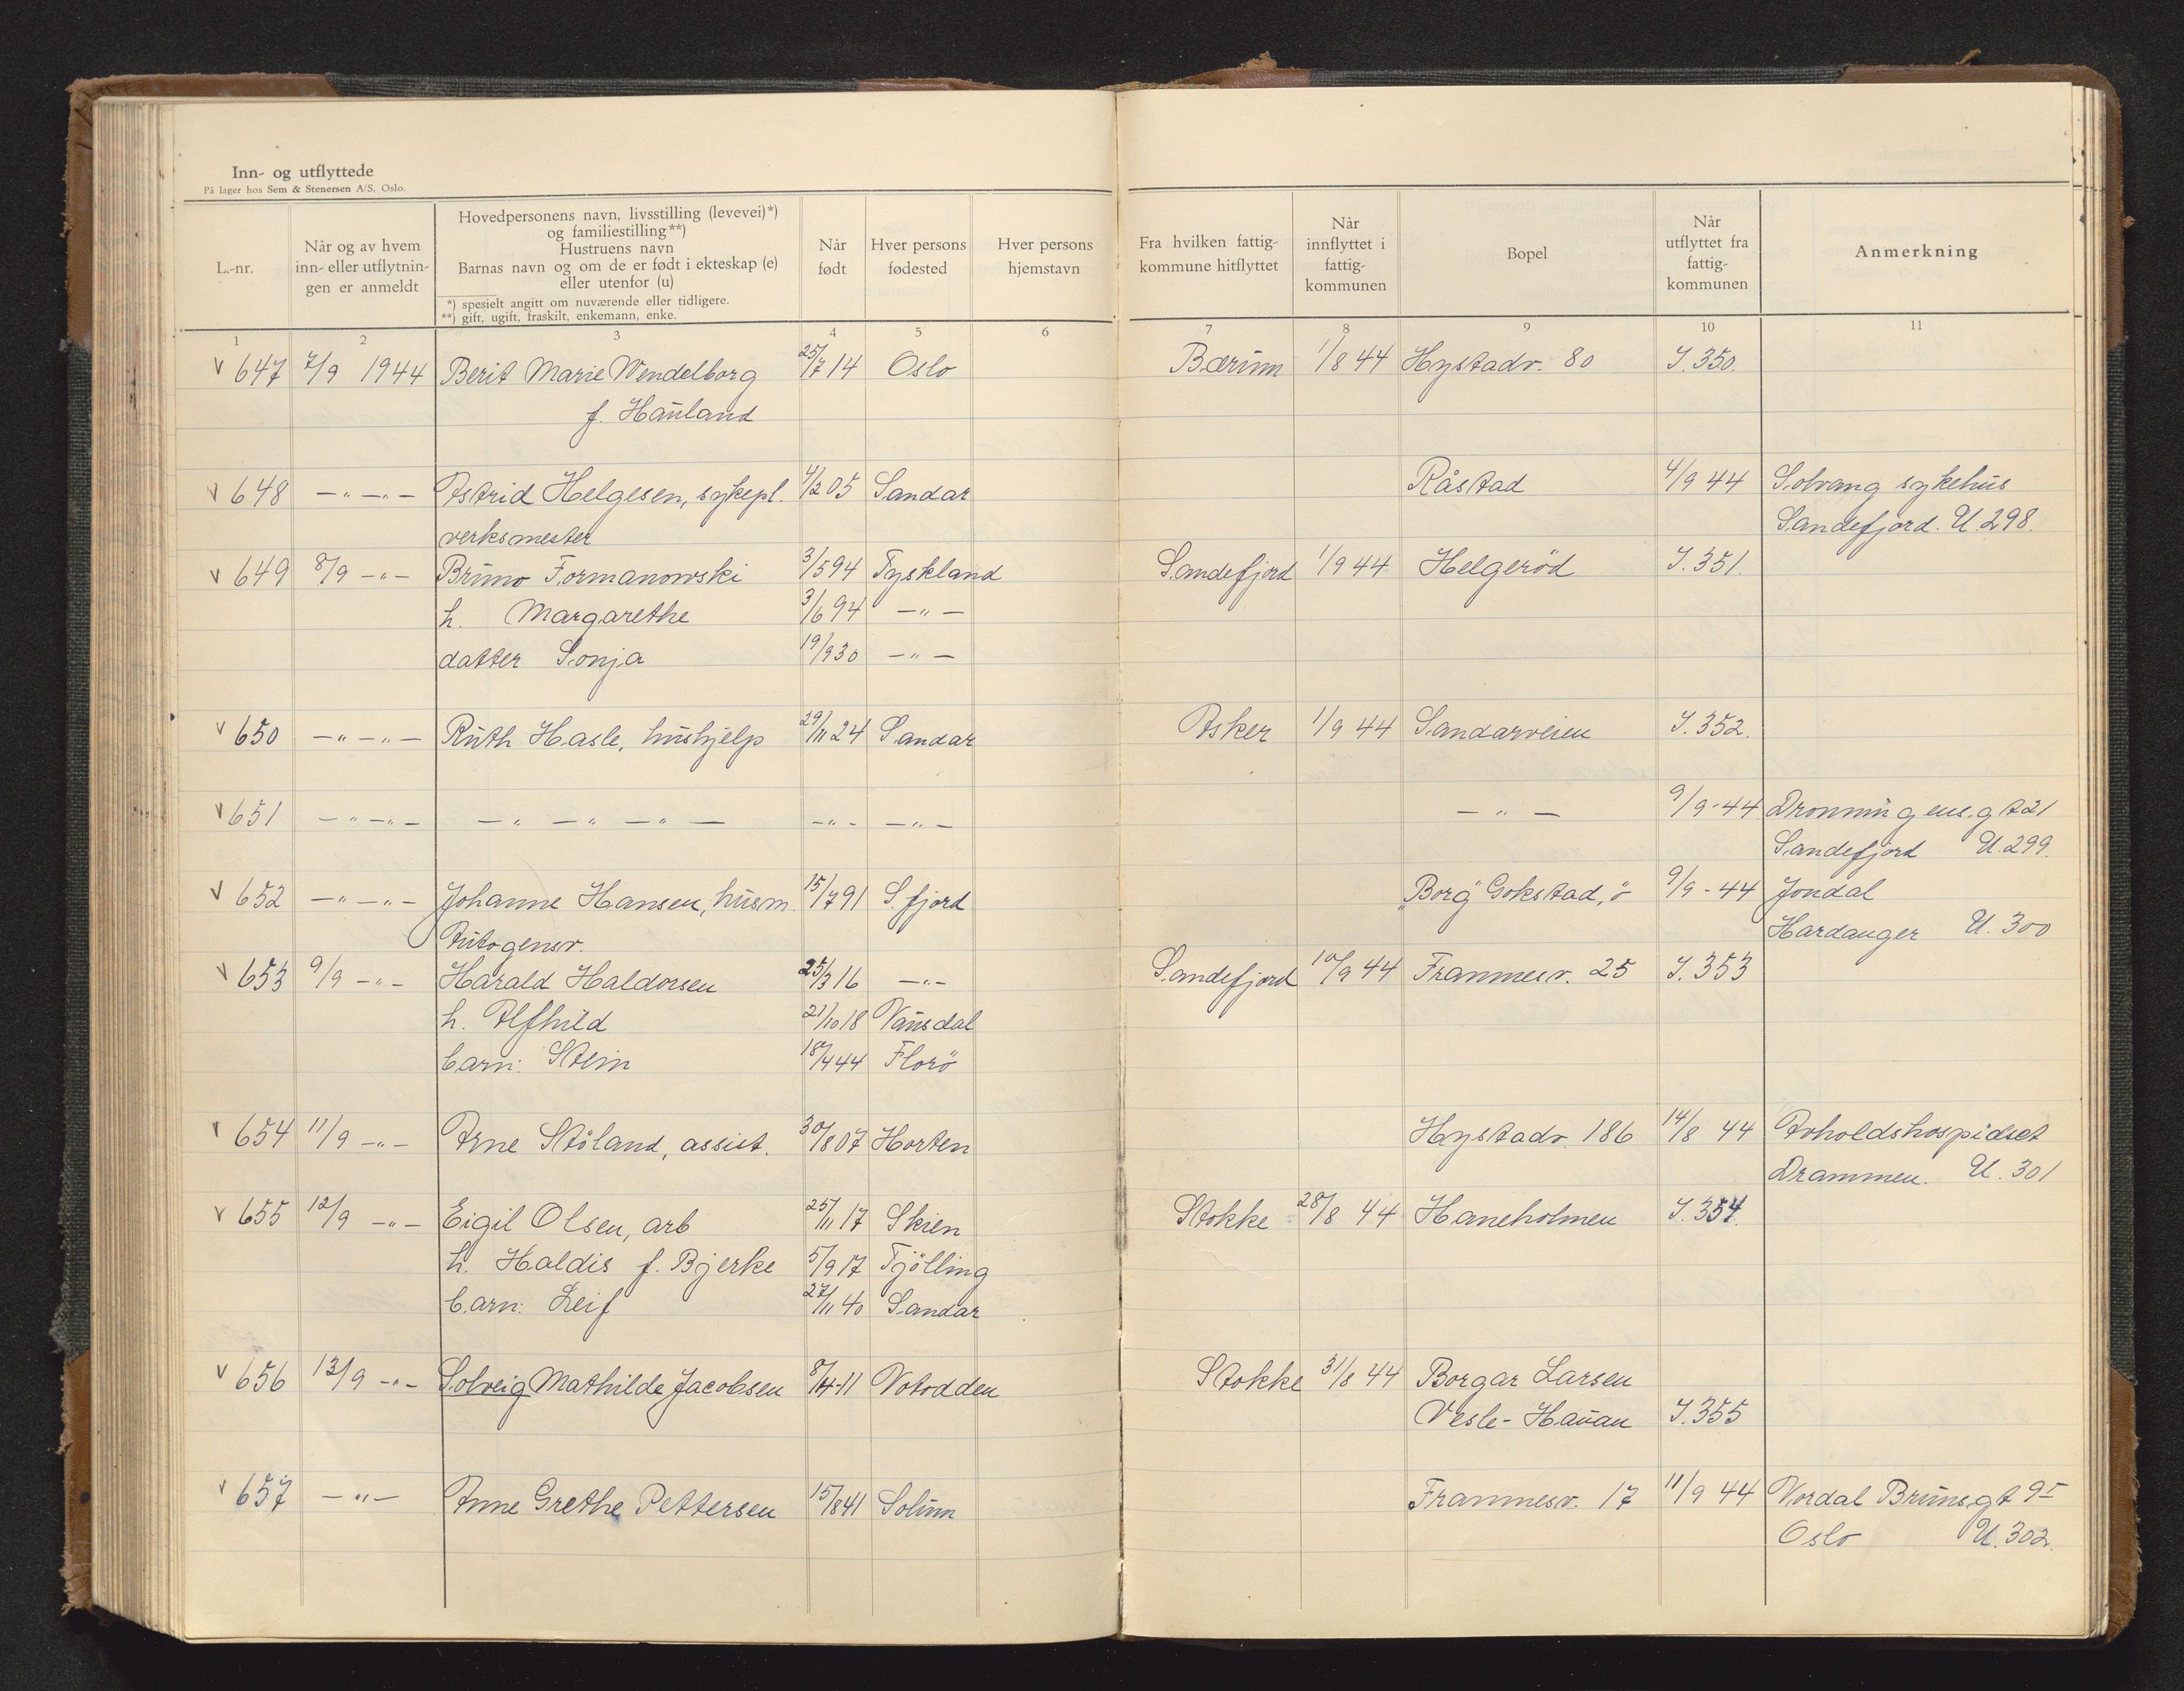 Inn- og utflyttede
På lager hos Sem & Stenersen A/S, Oslo.
L.-nr.
Når og av hvem
inn- eller utflytnin-
gen er anmeldt
Hovedpersonens navn, livsstilling (levevei)*)
og familiestilling**)
Hustruens navn
Barnas navn og om de er født i ekteskap (e)
eller utenfor (u)
*) spesielt angitt om nuværende eller tidligere.
**) gift, ugift, fraskilt, enkemann, enke.
Når
født
Hver persons
fødested
Hver persons
hjemstavn
Fra hvilken fattig-
kommune hitflyttet
Når
innflyttet i
fattig-
kommunen
Bopel
Når
utflyttet fra
fattig-
kommunen
Anmerkning
1 2 3 4 5 6 7 8 9 10 11
v 647 7/9 1944 Berit Marie Wendelborg 25/7 14 Oslo Bærum 1/8 44 Hystadv. 80 I. 350.
f. Hauland
v 648 -"- -"- Astrid Helgesen, sykepl. 4/2 05 Sandar Råstad 4/9 44 Solvang sykehus
Sandefjord. U. 298.
verksmester
v 649 8/9 -"- Bruno Formanowski 3/5 94 Tyskland Sandefjord 1/9 44 Helgeröd I. 351.
h. Margarethe 3/6 94 -"-
datter Sonja 19/9 30 -"-
v 650 -"- -"- Ruth Hasle, hushjelp 29/11 24 Sandar Asker 1/9 44 Sandarveien I. 352.
v 651 -"- -"- -"- -"- -"- -"- -"- -"- 9/9-44 Dronningens.gt 21
Sandefjord U. 299.
v 652 -"- -"- Johanne Hansen, husm. 15/7 91 S.fjord "Borg" Gokstad, ö 9/9-44 Jondal
Hardanger U. 300
Autogensv.
v 653 9/9 -"- Harald Haldorsen 25/3 16 -"- Sandefjord 10/9 44 Framnesv. 25 I. 353
h. Alfhild 21/10 18 Vausdal
barn: Stein 18/4 44 Florö
v 654 11/9 -"- Arne Stöland, assist. 30/8 07 Horten Hystadv. 186 14/8 44 Avholdshospidset
Drammen. U. 301
v 655 12/9 -"- Eigil Olsen, arb 25/11 17 Skien Stokke 28/8 44 Haneholmen I. 354.
h. Haldis f. Bjerke 5/9 17 Tjölling
barn: Leif 27/11 40 Sandar
v 656 13/9 -"- Solveig Mathilde Jacobsen 8/4-11 Notodden Stokke 31/8 44 Borgar Larsen
Vesle-Hauan I. 355
v 657 -"- Anne Grethe Pettersen 15/8 41 Solum Framnesv. 17 11/9 44 Nordal Bruns.gt 9 I
Oslo U. 302.